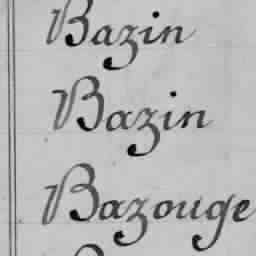 Bazin
Bazin
Bazouge